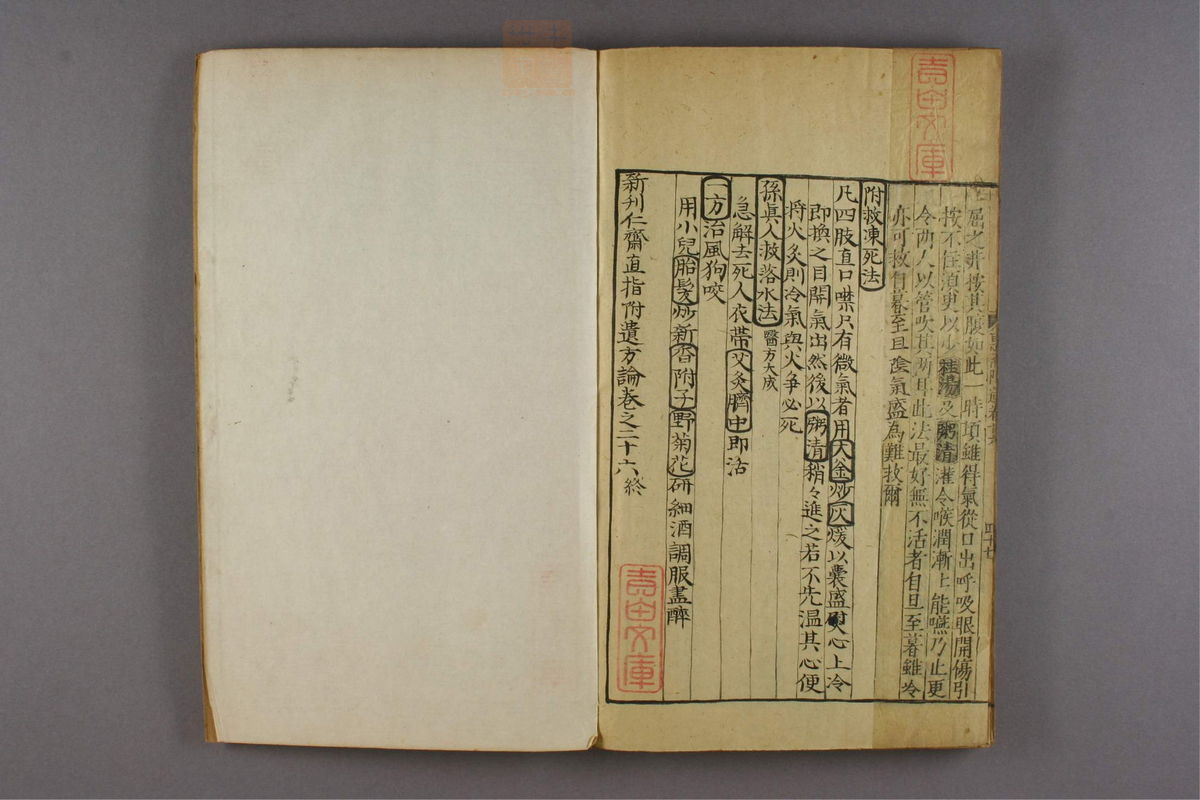 屈之并按其腹如此一時頃雖得氣從口出呼吸眼開傷引
按不住須臾以少桂湯及粥清灌令喉潤漸上能嚥乃止更
令両人以管吹其両耳此法最好無不活者自旦至暮雖冷
亦可救自暮至旦陰氣盛為難救爾
附救凍死法
凡四肢直口噤只有微氣者用大釜炒灰煖以囊盛熨心上冷
即換之目開氣出然後以粥清稍々進之若不先温其心便
将火炙則冷氣與火争必死
孫眞人救落水法 醫方大成
急解去死人衣帶艾灸臍中即活
一方治風狗咬
用小兒胎髮炒新香附子野菊花研細酒調服盡醉
新刋仁齋直指附遺方論卷之二十六 終
四十七
吉田文庫
吉田文庫